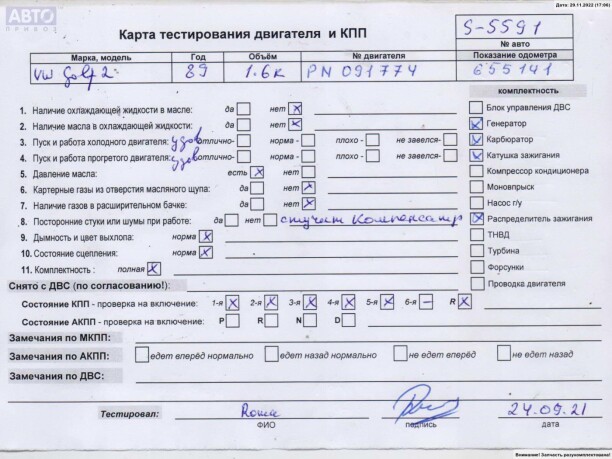 Дата: 29.11.2022 (17:06)
АВТО
ПРИВОЗ
Карта тестирования двигателя и КПП
S-5591
№ авто
Марка, модель Год Объём № двигателя Показание одометра
VW golf 2 89 1.6к PN 091774 655141
комплектность
1. Наличие охлаждающей жидкости в масле: да нет x
Блок управления ДВС
2. Наличие масла в охлаждающей жидкости: да нет x
x Генератор
3. Пуск и работа холодного двигателя: удов отлично- норма - плохо - не завелся-
x Карбюратор
4. Пуск и работа прогретого двигателя: удов отлично- норма - плохо - не завелся-
x Катушка зажигания
5. Давление масла: есть x нет
Компрессор кондиционера
6. Картерные газы из отверстия масляного щупа: да нет x
Моновпрыск
7. Наличие газов в расширительном бачке: да нет x
Насос г/у
8. Посторонние стуки или шумы при работе: да нет стучит компенсатор
x Распределитель зажигания
9. Дымность и цвет выхлопа: норма x
ТНВД
10. Состояние сцепления: норма x
Турбина
11. Комплектность : полная x
Форсунки
Снято с ДВС (по согласованию!):
Проводка двигателя
Состояние КПП - проверка на включение: 1-я x 2-я x 3-я x 4-я x 5-я x 6-я – R x
Состояние АКПП - проверка на включение: P R N D
Замечания по МКПП:
Замечания по АКПП: едет вперёд нормально едет назад нормально не едет вперёд не едет назад
Замечания по ДВС:
Тестировал: Рома 24.09.21
ФИО подпись дата
Внимание! Запчасть разукомплектована!